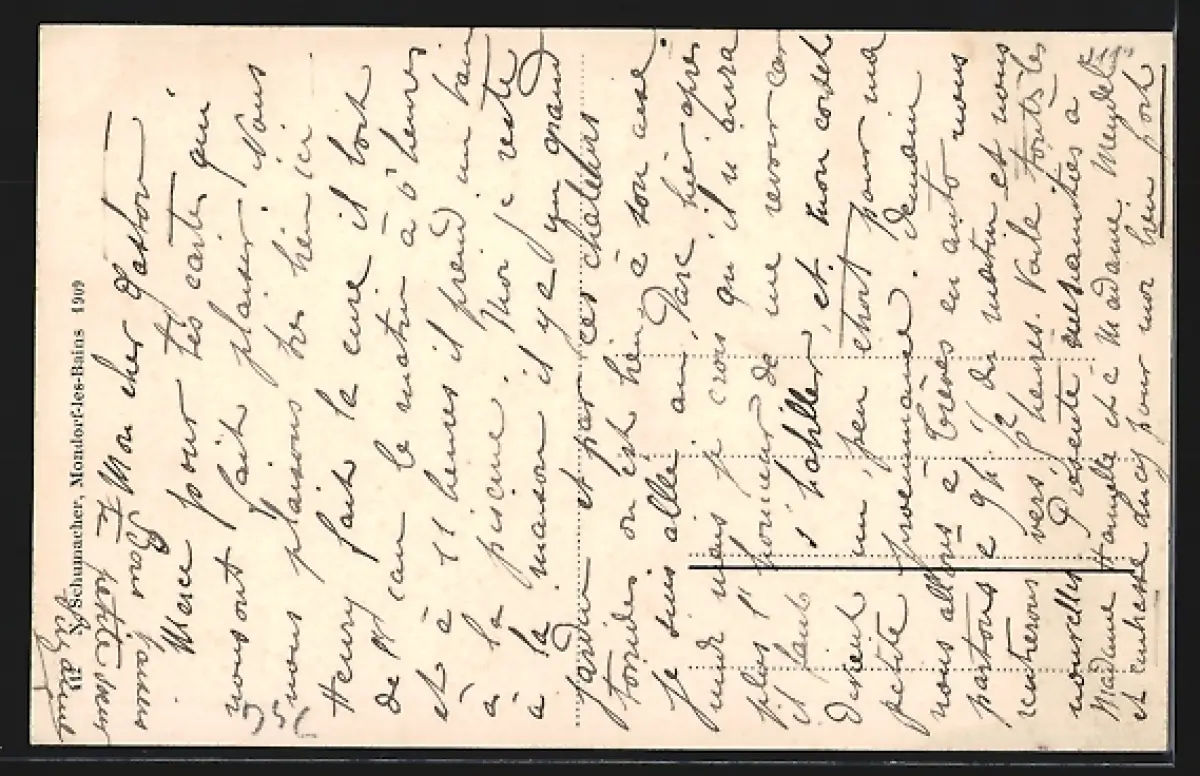 Schumacher, Mondorf-les-Bains 1909
Mon cher Gaston
Merci pour tes cartes qui
nous ont fait plaisir. Nous
nous plaisons très bien ici
Henry fait la cure il boit
de l'eau le matin à 6 heures
et à 11 heures il prend un bain
à la piscine. Moi je reste
à la maison il y a un grand
jardin et par ces chaleurs
torrides on est bien à son aise
je suis allée au Parc hier après
midi mais je crois qu'il n'aura
plus l'honneur de me revoir car
il faut s'habiller, et mon corset
devient un peu étroit pour ma
petite promenade. Demain
nous allons à Trèves en auto nous
partons à 9 h du matin et nous
rentrerons vers heures. Voilà toutes les
nouvelles Présente mes amitiés à
Madame et à Madame
et embrasse Lucy pour moi bien fort
Bons baisers
Ta petite sœur